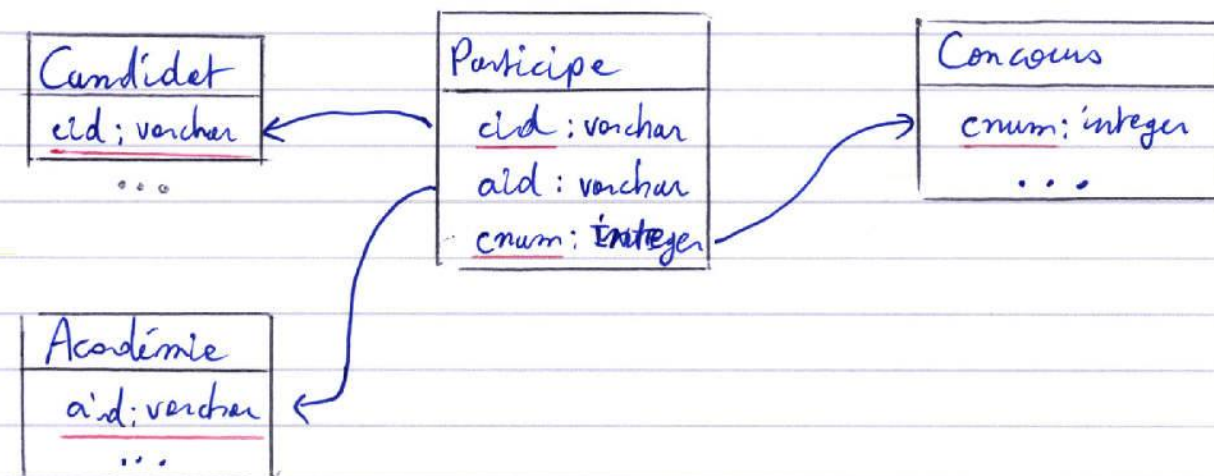 Candidat
cid : varchar
...
Participe
cid : varchar
aid : varchar
cnum : integer
Concours
cnum : integer
...
Académie
aid : varchar
...